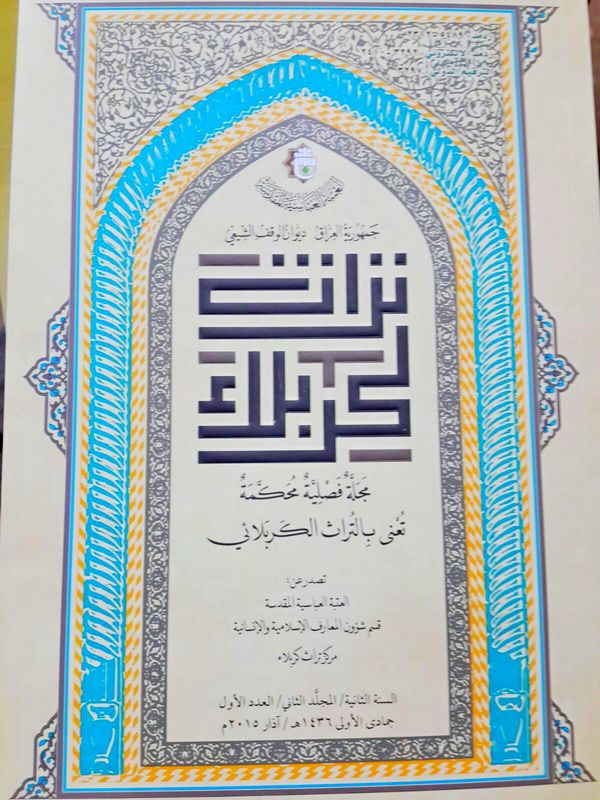 جمهورية العراق ديوان الوقف الشيعي
تراث
كربلاء
مَجَلَّةٌ فَصْلِيَّةٌ مُحَكَّمَةٌ
تُعْنى بِالتُراث الكَربَلائي
تصدر عن:
العتبة العباسية المقدسة
قسم شؤون المعارف الإسلامية والإنسانية
مركز تراث كربلاء
السنة الثانية/ المجلّد الثاني/ العدد الأول
جمادى الأولى ١٤٣٦هـ/ آذار ٢٠١٥م